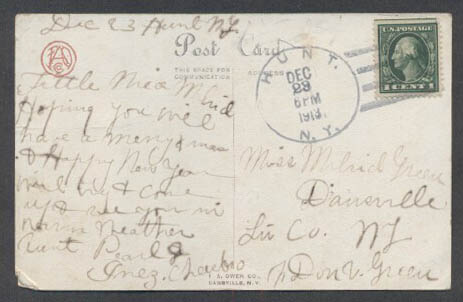 Dec 23 Hunt NY
Post Card
THIS SPACE FOR
COMMUNICATION
ADDRESS
HUNT.
DEC
23
6 PM
1913
N.Y.
U.S. POSTAGE
1 CENT 1
Little Miss
Hoping you will
have a merry Xmas
& Happy New Year
will try & come
up & see you in
warm weather
Aunt Pearl &
Inez
Miss Mildrid Green
Dansville
Liv Co. NY
% Don V. Green
F. A. OWEN CO.,
DANSVILLE, N.Y.